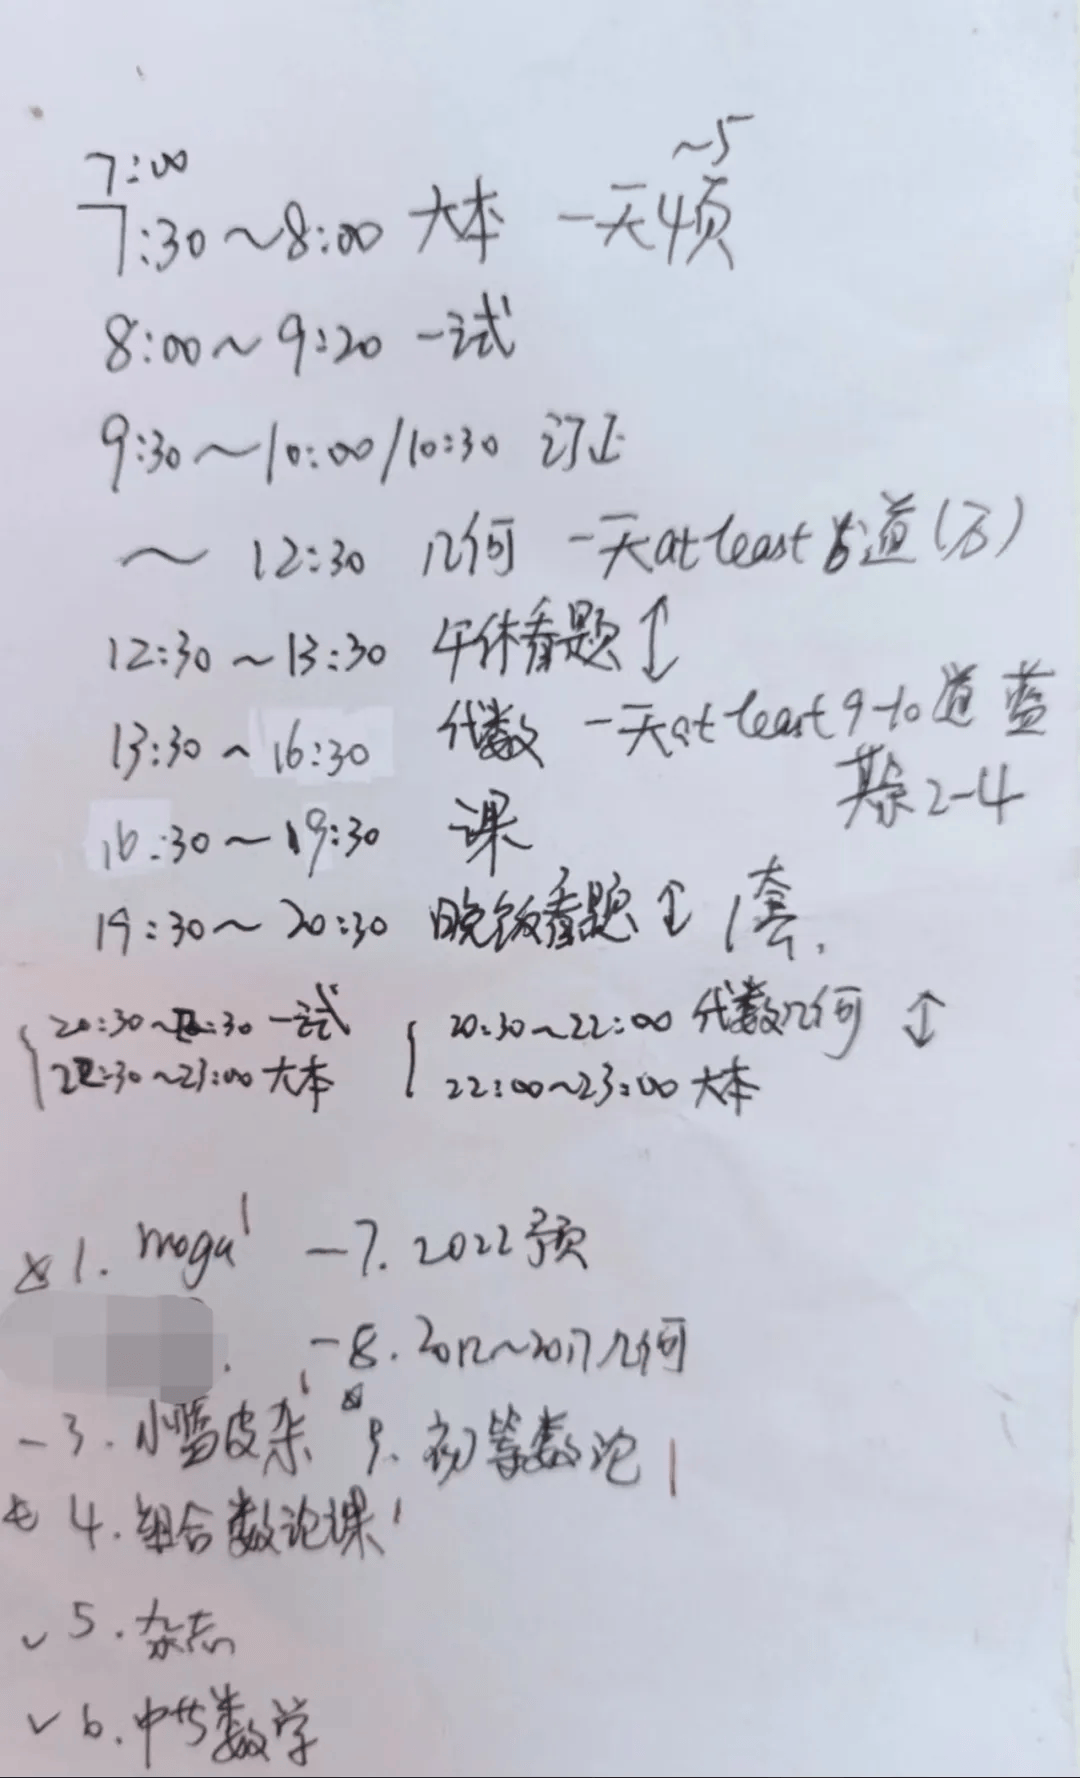 7:00
~5
7:30~8:00 大本 一天4页
8:00~9:20 一试
9:30~10:00/10:30 订正
~ 12:30 几何 一天at least 道
12:30~13:30 午休看题↕
13:30~16:30 代数 一天at least 9-10道 蓝
其余2-4
16:30~19:30 课
19:30~20:30 晚饭看题↕ 1套.
20:30~ :30 一试
22:30~23:00 大本
20:30~22:00 代数几何 ↕
22:00~23:00 大本
1. moga
-7. 2022预
-8. 2012~2017几何
-3. 小蓝皮杂
9. 初等数论
4. 组合数论课
✓5. 杂志
✓6. 中等数学